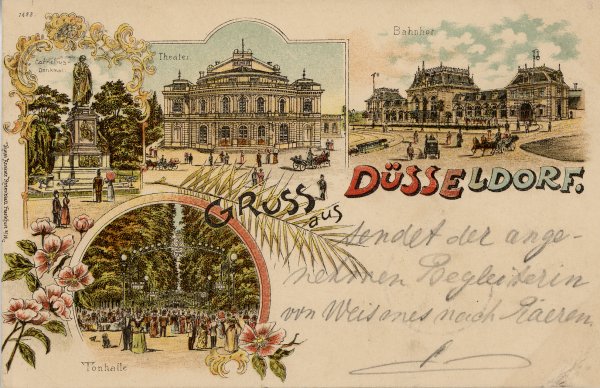 1488.
Cornelius-
Denkmal.
Theater
Bahnhof
GRUSS aus DÜSSELDORF.
sendet der ange-
nehmen Begleiterin
von Weismes nach Raeren
Tonhalle